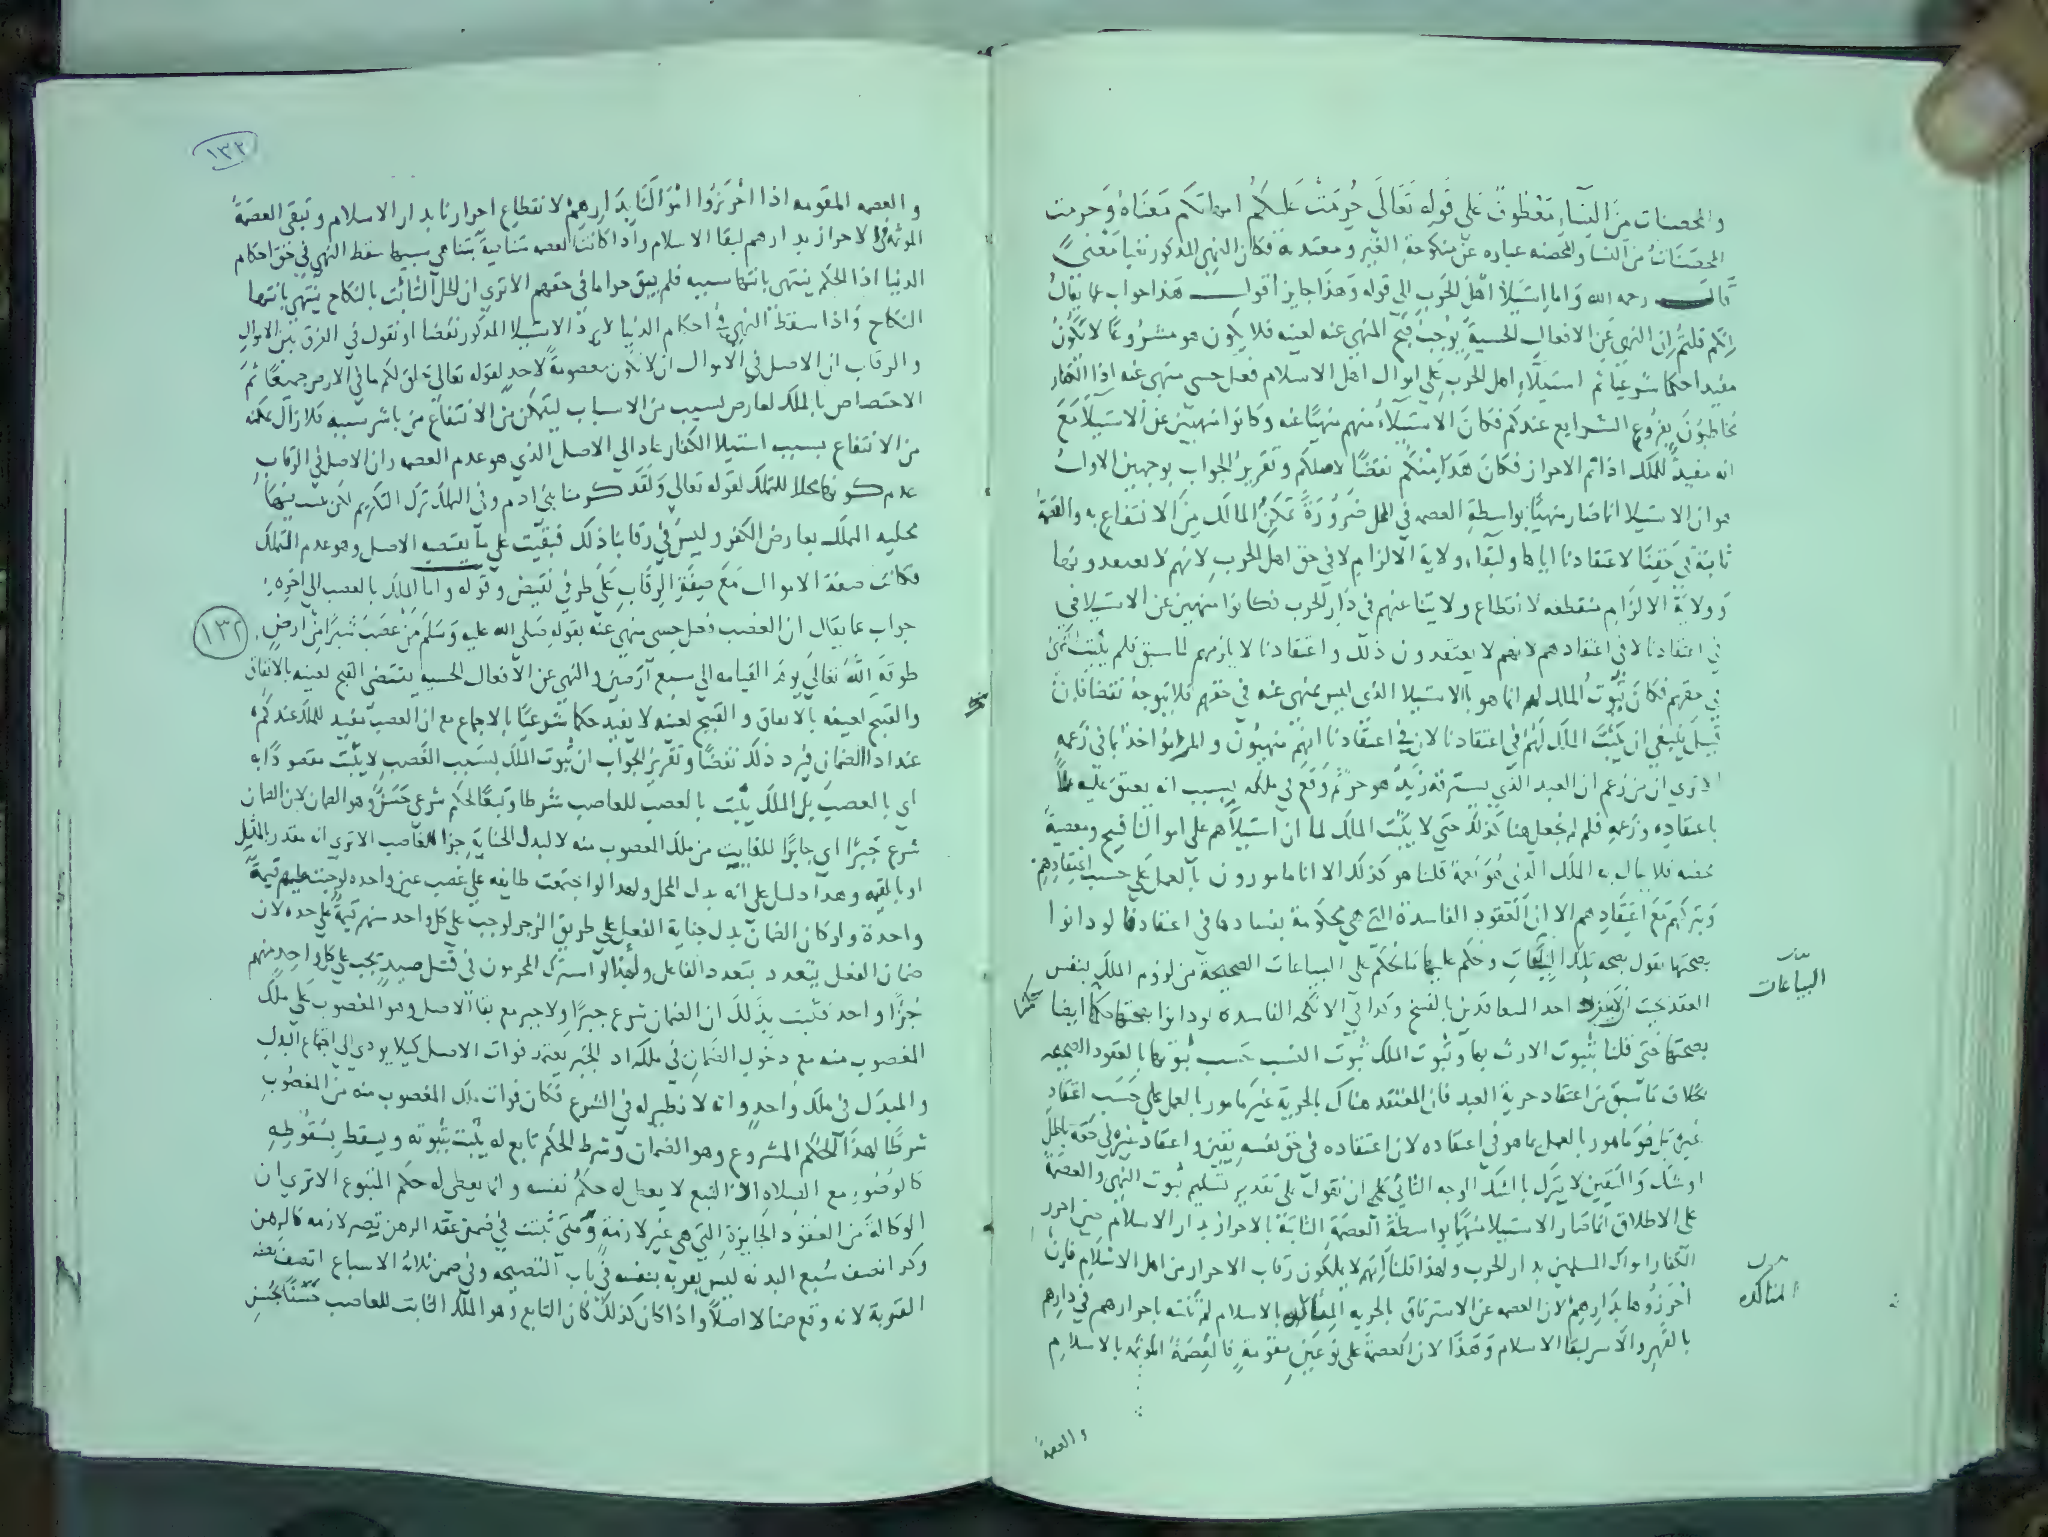 والمحصنات من النساء معطوف على قوله تعالى حرمت عليكم امهاتكم معناه وحرمت
المحصنات من النسا والمحصنه عباره عن منكوحة الغير ومعتدته فكان النهي المذكور نفيا معنى
قال رحمه الله واما استيلاء اهل الحرب الى قوله وهذا جايز اقول هذا جواب عما يقال
انكم قلتم ان النهي عن الافعال الحسية يوجب قبح المنهي عنه لعينه فلا يكون هو مشروعا لا يكون
مفيدا حكما شرعيا ثم استيلاء اهل الحرب على اموال اهل الاسلام فعل حسي منهي عنه اذا الكفار
مخاطبون بفروع الشرايع عندكم فكان الاستيلاء منهم منهيا عنه وكانوا منهيين عن الاستيلاء مع
انه مفيد للملك اذا تم الاحراز فكان هذا منكم نقضا لاصلكم وتقرير الجواب بوجهين الاول
هو ان الاستيلا انما صار منهيا بواسطة العصمه في المحل ضرورة تمكن المالك من الانتفاع به والعصمة
ثابتة في حقنا لاعتقادنا اياها ولبقاء ولاية الالزام لا في حق اهل الحرب لانهم لا يعتقدونها
وولاية الالزام منقطعه لانقطاع ولايتنا عنهم في دار الحرب فكانوا منهيين عن الاستيلا في
في اعتقادنا لا في اعتقادهم لانهم لا يعتقدون ذلك واعتقادنا لا يلزمهم لما سبق فلم يثبت النهي
في حقهم فكان ثبوت الملك لهم انما هو بالاستيلا الذي ليس بمنهي عنه في حقهم فلا يتوجه نقضا فان
قيل ينبغي ان يثبت الملك لهم في اعتقادنا لان في اعتقادنا انهم منهيون والمرا يواخذ بما في زعمه
الا ترى ان من زعم ان العبد الذي يسترقه زيد هو حر ثم وقع في ملكه بسبب انه يعتق عليه
باعتقاده وزعمه فلم لم يجعل هنا كذلك حتى لا يثبت الملك لما ان استيلاهم على اموالنا قبيح ومعصية
محضه فلا ينال به الملك الذي هو نعمة قلنا هو كذلك الا انا مامورون بالعمل على حسب اعتقادهم
وبتركهم مع اعتقادهم الا ان العقود الفاسدة التي هي محكومة بفسادها في اعتقادنا لو دانوا
بصحتها نقول بصحه تلك البياعات وحكم عليها ما نحكم على البياعات الصحيحة من لزوم الملك بنفس
العقد بحيث لا ينفرد احد المتعاقدين بالفسخ وكذا في الانكحه الفاسده لو دانوا بصحتها حكمنا ايضا
بصحتها حتى قلنا بثبوت الارث بها وثبوت الملك ثبوت النسب حسب ثبوتها بالعقود الصحيحه
بخلاف ما سبق من اعتقاد حرية العبد فان المعتقد هناك بالحرية غير مامور بالعمل على حسب اعتقاد
غيره بل هو مامور بالعمل بما هو في اعتقاده لان اعتقاده في حق نفسه يقين واعتقاد غيره في حقه باطل
او شك واليقين لا يترك بالشك الوجه الثاني ان نقول على تقدير تسليم ثبوت النهي والعصمة
على الاطلاق انما صار الاستيلا منهيا بواسطة العصمة الثابتة بالاحراز بدار الاسلام حتى احرز
الكفار اموال المسلمين بدار الحرب ولهذا قلنا انهم لا يملكون رقاب الاحرار من اهل الاسلام فان
احرزوها بدارهم لان العصمه عن الاسترقاق بالحريه المتاكده بالاسلام لم تنته باحرازهم في دارهم
بالقهر والاسر لبقا الاسلام وهذا لان العصمة على نوعين مقومة فالعصمة الموثمه بالاسلام
والعصمة
البياعات
حكمنا
المتاكده
١٣٢
والعصمه المقومه اذا احرزوا اموالنا بدارهم لانقطاع احرازنا بدار الاسلام وتبقى العصمة
الموثمة في الاحراز بدارهم لبقا الاسلام واذا كانت العصمه متناهية بتناهي سببها سقط النهي في حق احكام
الدنيا اذا الحكم ينتهي بانتها سببه فلم يبق حراما في حقهم الا ترى ان الحل الثابت بالنكاح ينتهي بانتها
النكاح واذا سقط النهي في احكام الدنيا لم يرد الاستيلا المذكور نقضا او نقول في الفرق بين الاموال
والرقاب ان الاصل في الاموال ان لا تكون معصومة لاحد لقوله تعالى خلق لكم ما في الارض جميعا ثم
الاختصاص بالملك لعارض لسبب من الاسباب ليتمكن من الانتفاع من باشر سببه فلا زال تمكنه
من الانتفاع بسبب استيلا الكفار عاد الى الاصل الذي هو عدم العصمه وان الاصل في الرقاب
عدم كونها محلا للتملك لقوله تعالى ولقد كرمنا بني ادم وفي التملك ترك التكريم لكن تثبت فيها
محليه التملك بعارض الكفر وليس في رقابنا ذلك فبقيت على ما يقتضيه الاصل وهو عدم التملك
فكانت صفة الاموال مع صفة الرقاب على طرفي نقيض وقوله واما الملك بالغصب الى اخره
جواب عما يقال ان الغصب فعل حسي منهي عنه بقوله صلى الله عليه وسلم من غصب شبرا من ارض
طوقه الله تعالى يوم القيامه الى سبع ارضين والنهي عن الافعال الحسيه يقتضي القبح لعينه بالاتفاق
والقبح لعينه بالاتفاق والقبيح لعينه لا يفيد حكما شرعيا بالاجماع مع ان الغصب مفيد للملك عندكم
عند ادا الضمان فيرد ذلك نقضا وتقرير الجواب ان ثبوت الملك بسبب الغصب لا يثبت مقصودا به
اي بالغصب بل الملك يثبت بالغصب للغاصب شرطا وتبعا لحكم شرعي حسن وهو الضمان لان الضمان
شرع جبرا اي جابرا للفايت من ملك المغصوب منه لا لبدل الجناية جزا للغاصب الا ترى انه مقدر بالمثل
او بالقيمه وهذا دليل على انه بدل المحل ولهذا لو اجتمعت طايفه على غصب عين واحده لوجبت عليهم قيمة
واحدة ولو كان الضمان بدل جناية الفعل على طريق الزجر لوجب على كل واحد منهم قيمة على حده لان
ضمان الفعل يتعدد بتعدد الفاعل ولهذا لو اشترك المحرمون في قتل صيد يجب على كل واحد منهم
جزا واحد فثبت بذلك ان الضمان شرع جبرا ولا جبر مع بقا الاصل وهو المغصوب على ملك
المغصوب منه مع دخول الضمان في ملكه اذ الجبر يعتمد فوات الاصل كيلا يودي الى اجتماع البدل
والمبدل في ملك واحد وانه لا نظير له في الشرع فكان فوات ملك المغصوب منه من المغصوب
شرطا لهذا الحكم المشروع وهو الضمان وشرط الحكم تابع له يثبت بثبوته ويسقط بسقوطه
كالوضوء مع الصلاه اذ التبع لا يعطى له حكم نفسه وانما يعطى له حكم المتبوع الا ترى ان
الوكالة من العقود الجايزة التي هي غير لازمة ومتى ثبتت في ضمن عقد الرهن تصير لازمه كالرهن
وكذا نصف سبع البدنه ليس بقربه بنفسه في باب التضحيه وفي ضمن ثلاثة الاسباع اتصف بصفه
القربة لانه وقع ضمنا لا اصلا واذا كان كذلك كان التابع وهو الملك الثابت للغاصب حسنا بحسن
١٣٢